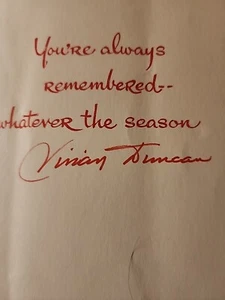 You're always
remembered--
whatever the season
Vivian Duncan